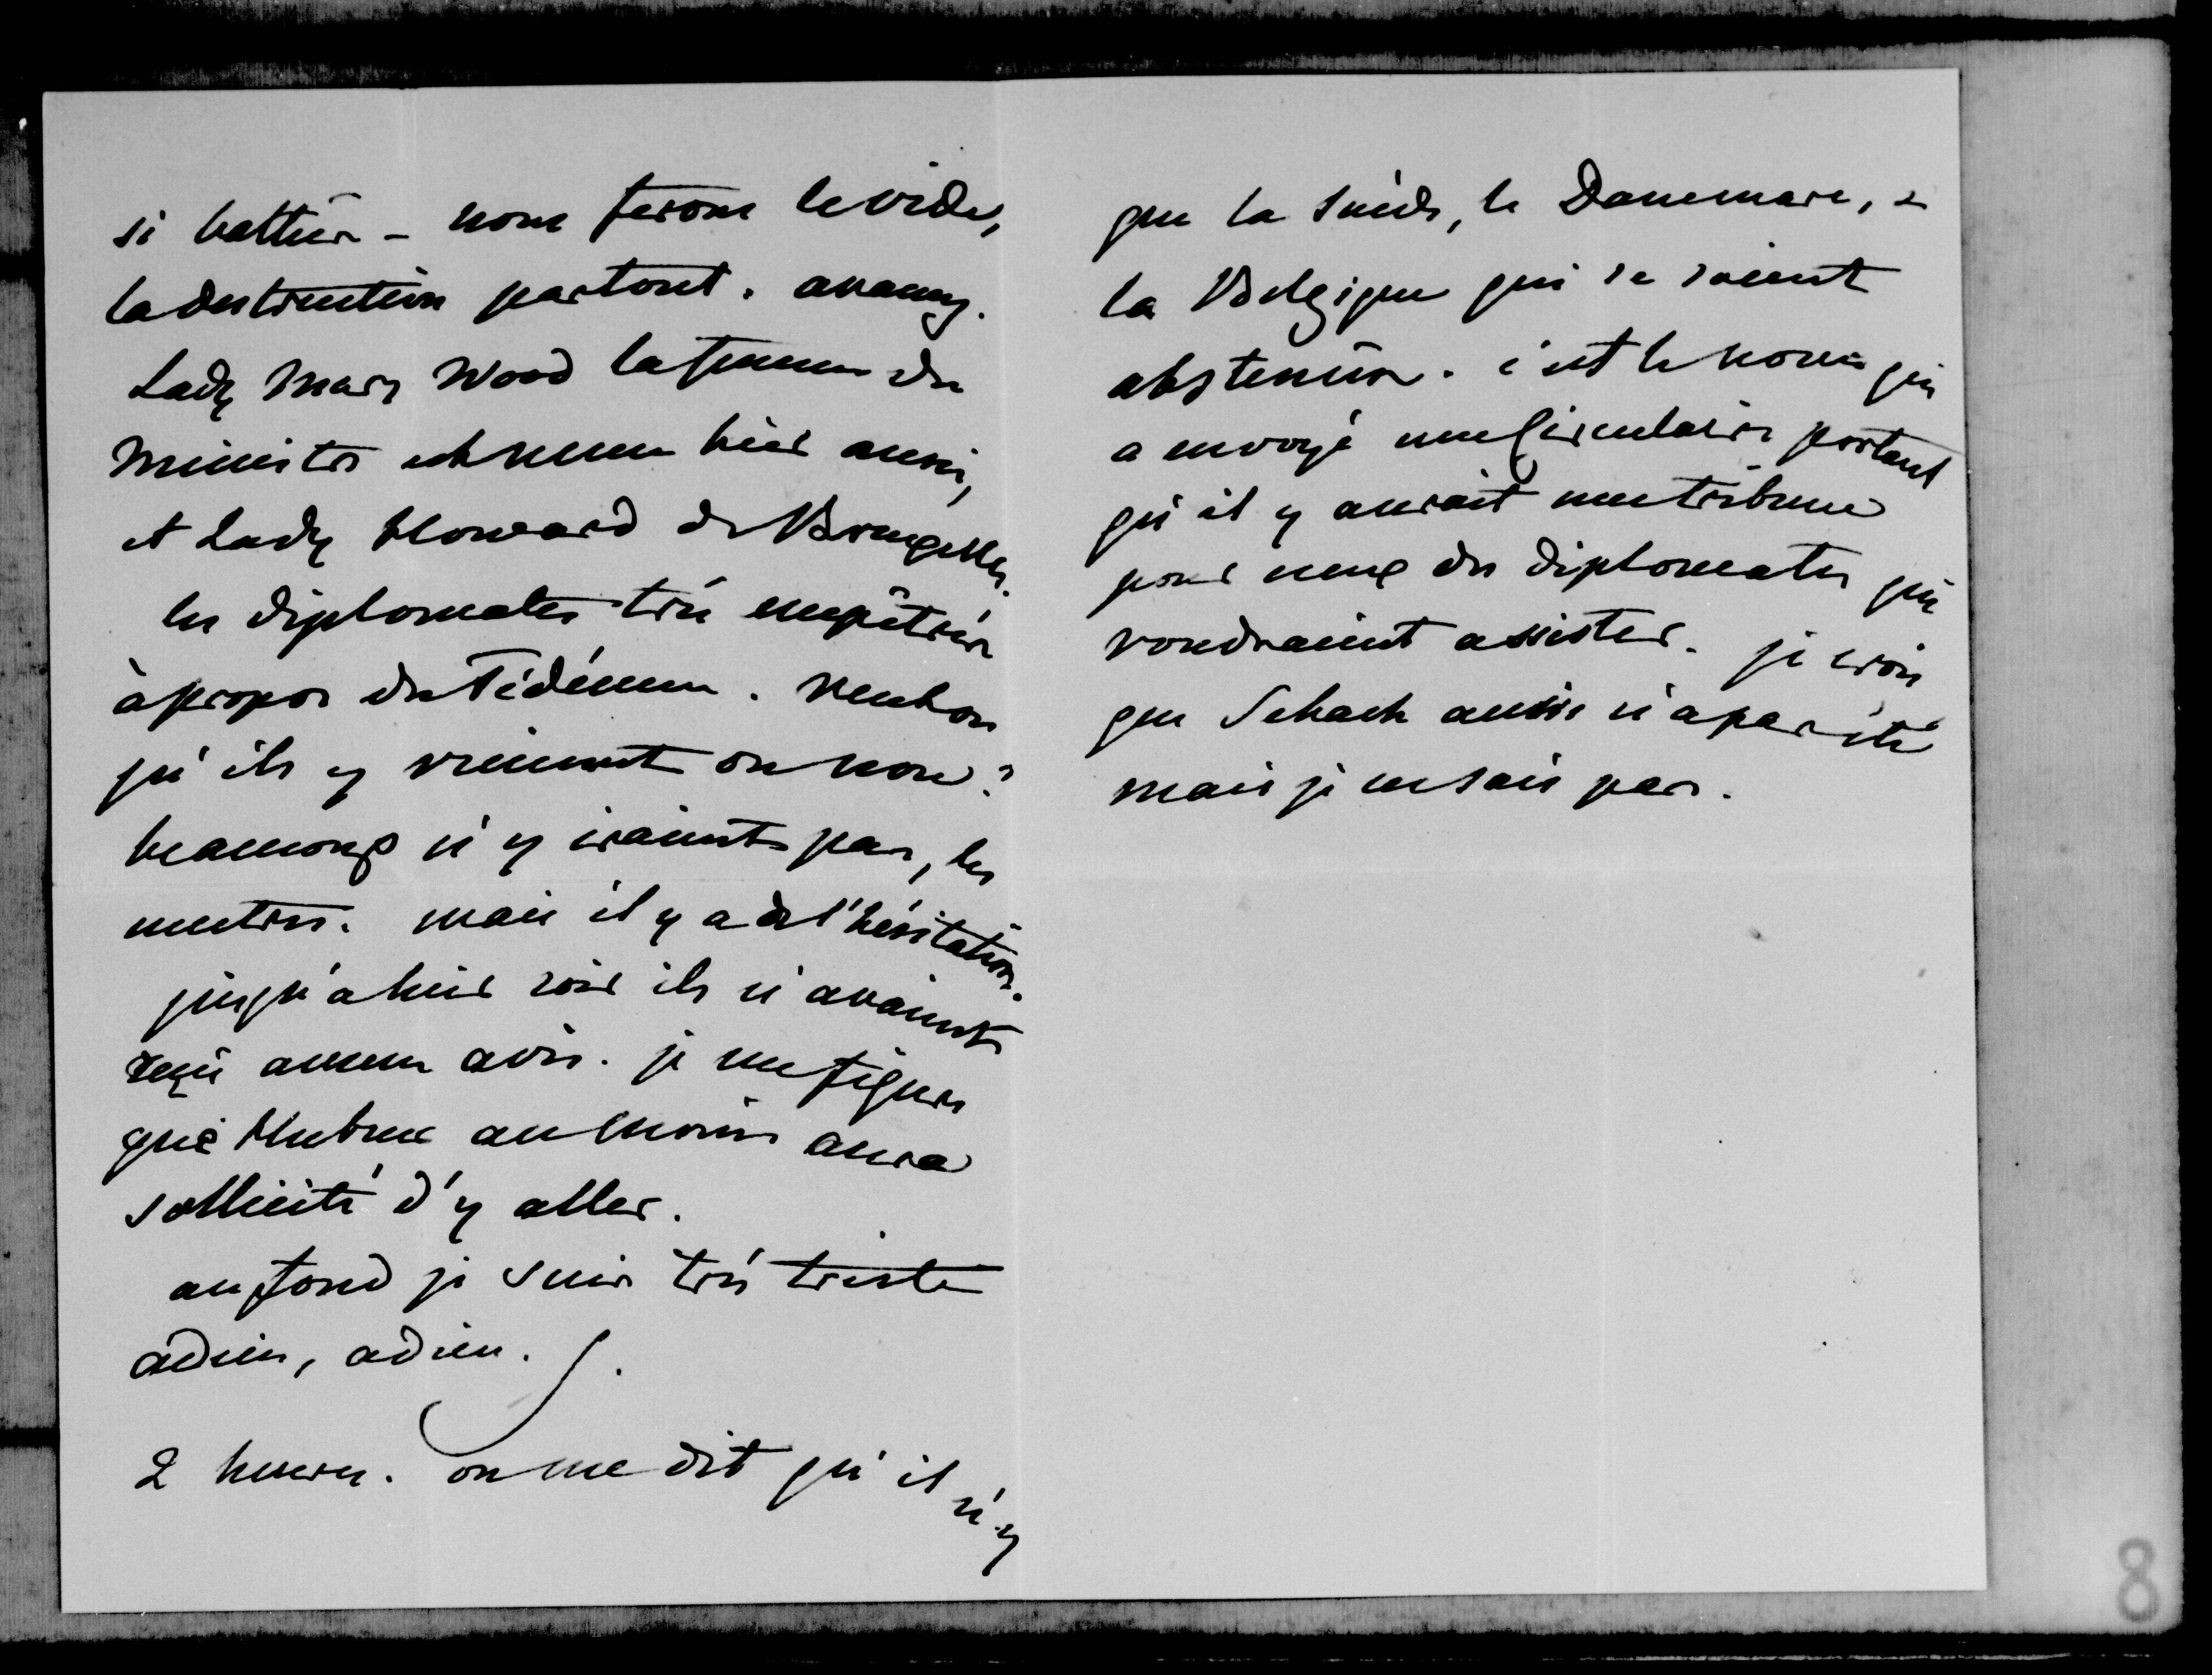 si battus – nous ferons le vide,
la destruction partout. avancez.
Lady Mary Wood la femme du
Ministre est venue hier aussi,
et Lady Howard de Bruxelles.
les diplomates très empêtrés
à propos du Tédéum. veut on
qu'ils y viennent ou non?
beaucoup n'y iraient pas, les
neutres. mais il y a de l'hésitation.
jusqu'à hier soir ils n'avaient
reçu aucun avis. je me figure
que Hubner au moins aura
sollicité d'y aller.
au fond je suis très triste
adieu, adieu.
2 heures. on me dit qu'il n'y
que la Suède, le Danemarc, &
la Belgique qui se soient
abstenus. c'est le nonce qui
a envoyé une Circulaire portant
qu'il y aurait une tribune
pour ceux des diplomates qui
voudraient assister. je crois
que Sebach aussi n'a pas été
mais je ne sais pas.
8